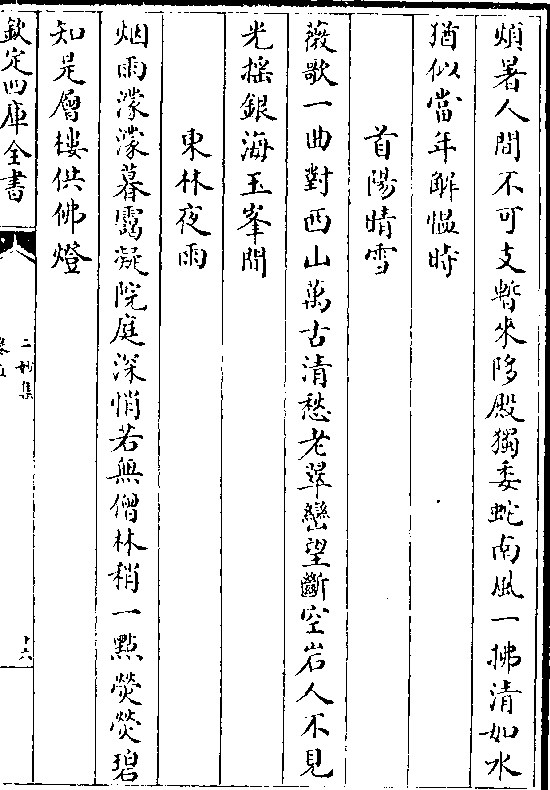 煩暑人間不可支暫來陟殿獨委蛇南風一拂清如水
猶似當年解慍時
首陽晴雪
薇歌一曲對西山萬古清愁老翠巒望斷空岩人不見
光摇銀海玉峯閒
東林夜雨
烟雨濛濛暮靄凝院庭深悄若無僧林稍一點熒熒碧
知是層樓供佛燈
欽定四庫全書
二妙集
卷五
十六